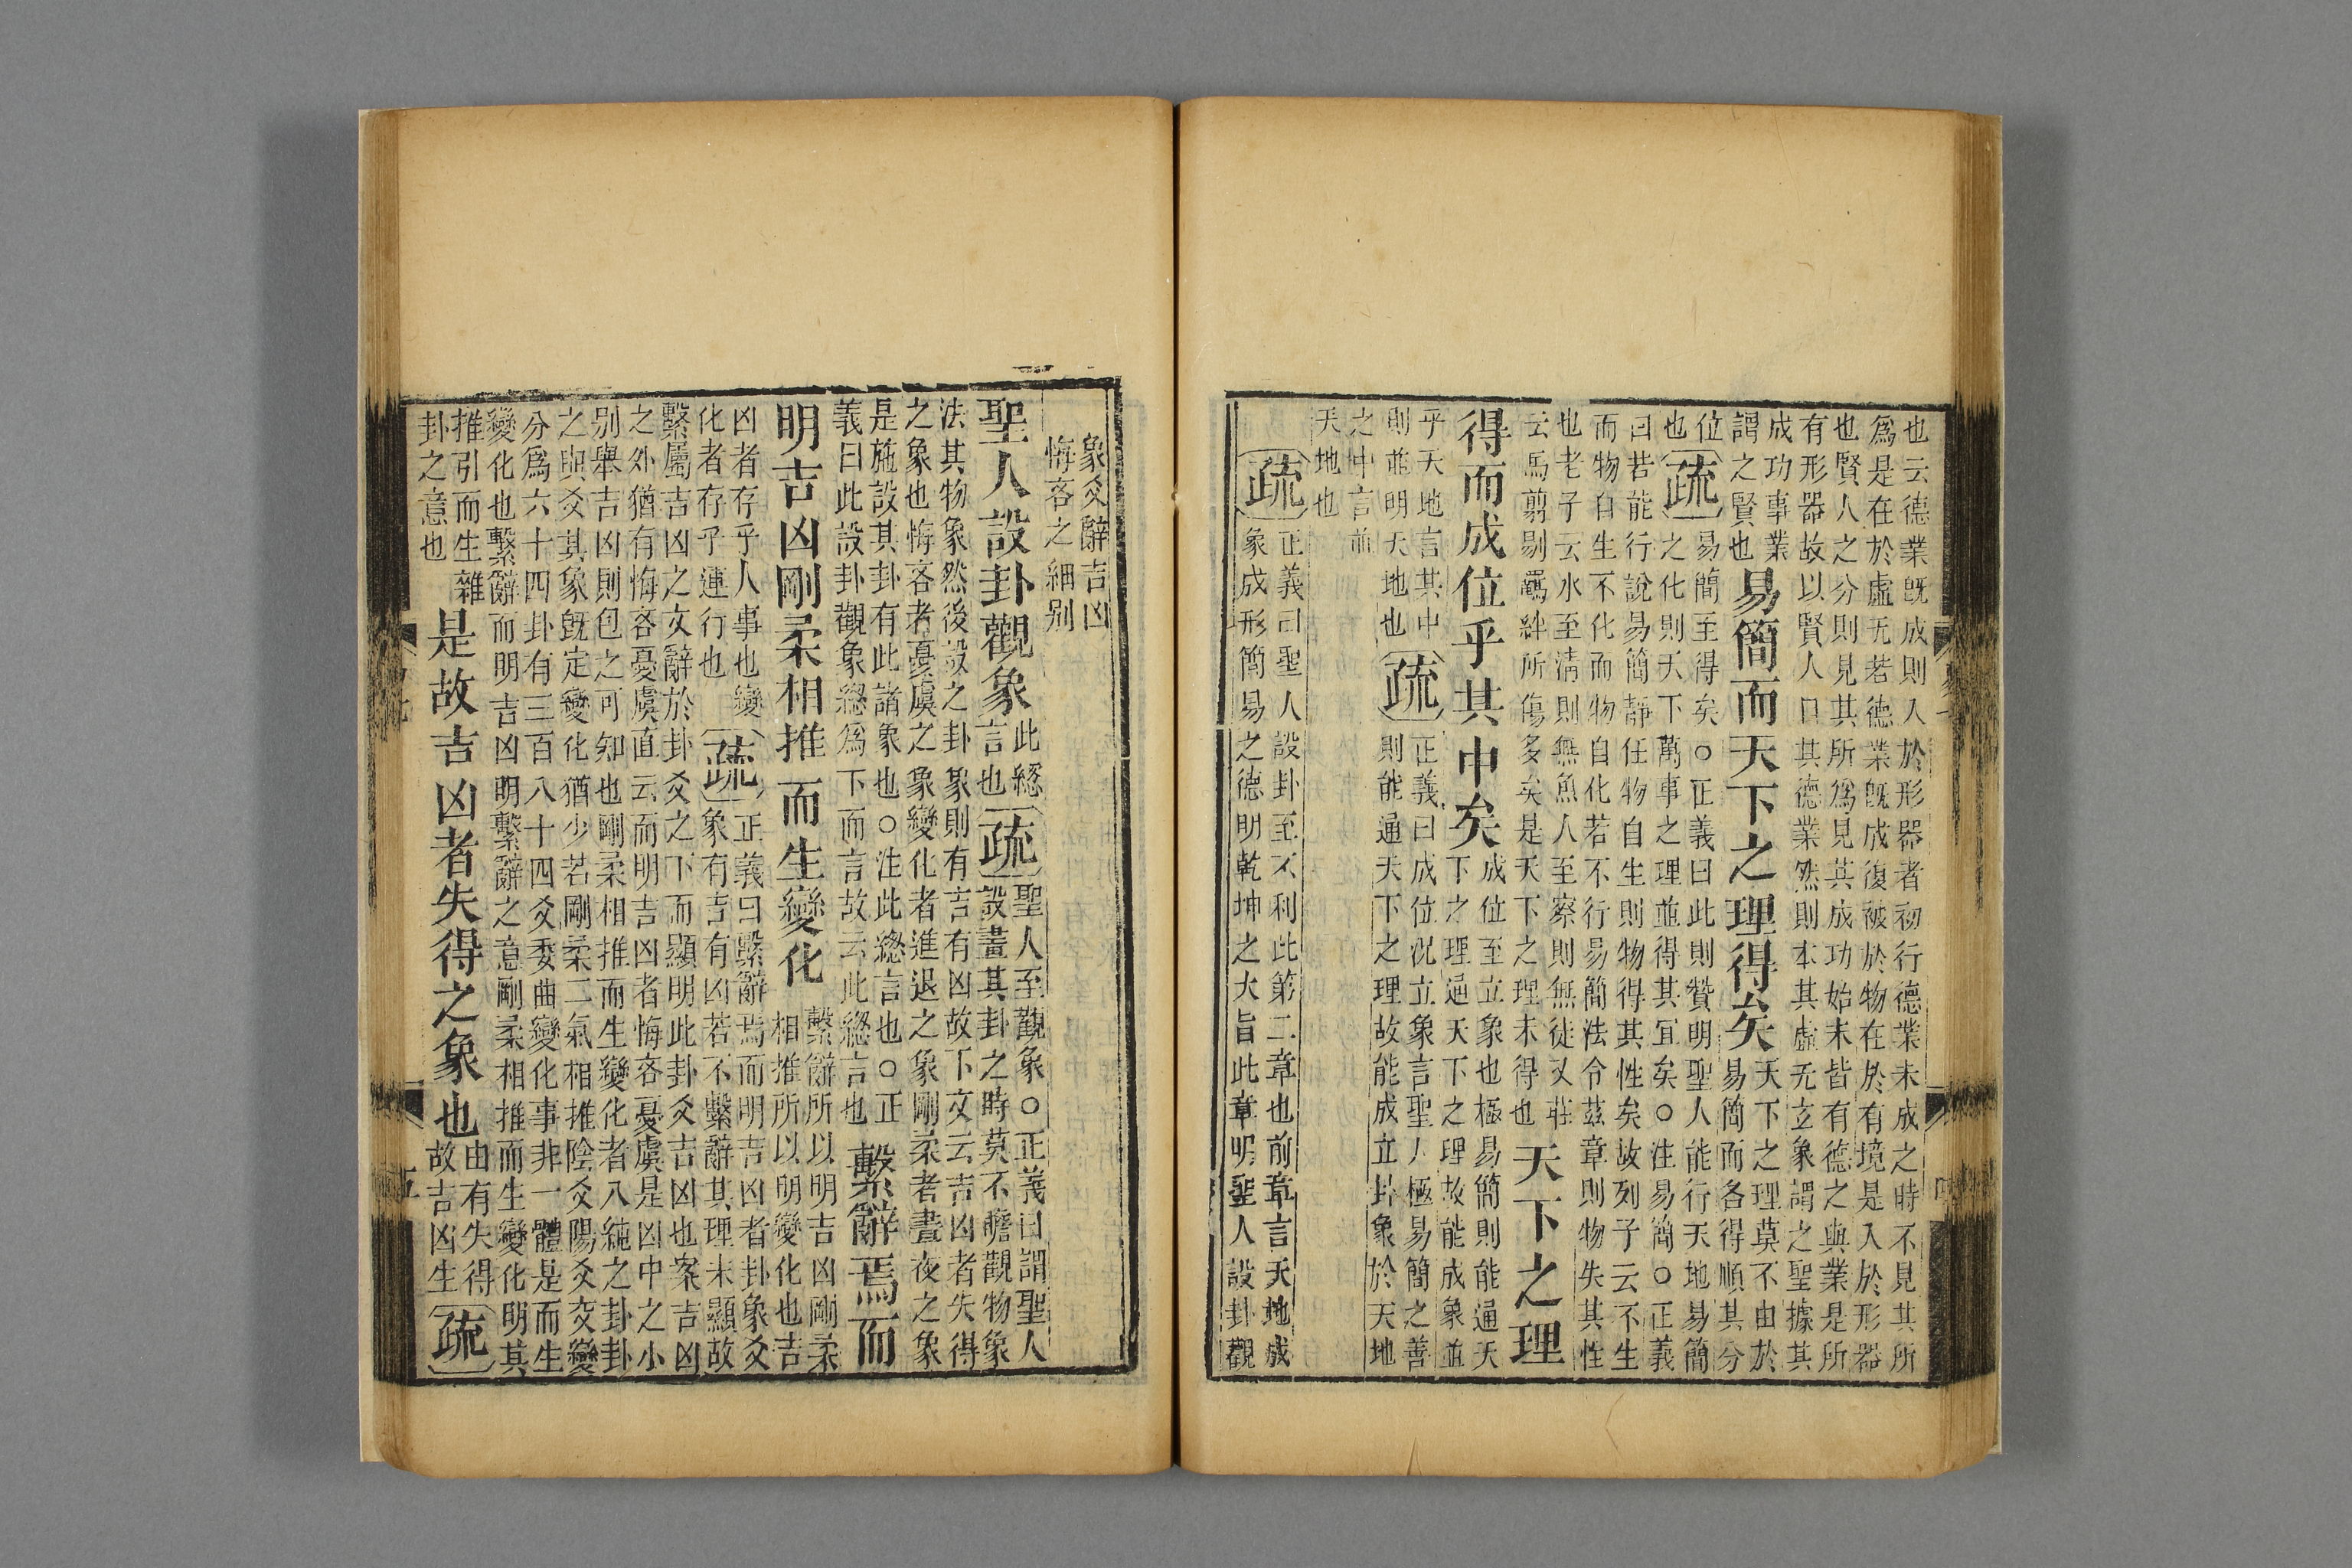 也云德業既成則入於形器者初行德業未成之時不見其所
爲是在於虛无若德業既成復被於物在於有境是入於形器
也賢人之分則見其所爲見其成功始末皆有德之與業是所
有形器故以賢人目其德業然則本其虛无玄象謂之聖據其
成功事業
謂之賢也
易簡而天下之理得矣
天下之理莫不由於
易簡而各得順其分
位
也
疏
易簡至得矣○正義曰此則贊明聖人能行天地易簡
之化則天下萬事之理並得其宜矣○注易簡○正義
曰若能行說易簡靜任物自生則物得其性矣故列子云不生
而物自生不化而物自化若不行易簡法令茲章則物失其性
也老子云水至清則無魚人至察則無徒又莊
云馬剪剔羈絆所傷多矣是天下之理未得也
天下之理
得而成位乎其中矣
成位至立象也極易簡則能通天
下之理通天下之理故能成象並
乎天地言其中
則並明天地也
疏
正義曰成位況立象言聖人極易簡之善
則能通天下之理故能成立卦象於天地
之中言並
天地也
疏
正義曰聖人設卦至不利此第二章也前章言天地成
象成形簡易之德明乾坤之大旨此章明聖人設卦觀
象爻辭吉凶
悔吝之細别
聖人設卦觀象
此緫
言也
疏
聖人至觀象○正義曰謂聖人
設畫其卦之時莫不瞻觀物象
法其物象然後設之卦象則有言有凶故下文云吉凶者失得
之象也悔吝者憂虞之象變化者進退之象剛柔者晝夜之象
是施設其卦有此諸象也○注此緫言也○正
義曰此設卦觀象緫爲下而言故云此緫言也
繫辭焉而
明吉凶剛柔相推而生變化
繫辭所以明吉凶剛柔
相推所以明變化也吉
凶者存乎人事也變
化者存乎運行也
疏
正義曰繫辭焉而明吉凶者卦象爻
象有吉有凶若不繫辭其理未顯故
繫屬吉凶之文辭於卦爻之下而顯明此卦爻吉凶也案吉凶
之外猶有悔吝憂虞直云而明吉凶者悔吝憂虞是凶中之小
别舉吉凶則包之可知也剛柔相推而生變化者八純之卦卦
之與爻其象既定變化猶少若剛柔二氣相推陰爻陽爻交變
分爲六十四卦有三百八十四爻委曲變化事非一體是而生
變化也繫辭而明吉凶明繫辭之意剛柔相推而生變化明其
推引而生雜
卦之意也
是故吉凶者失得之象也
由有失得
故吉凶生
疏